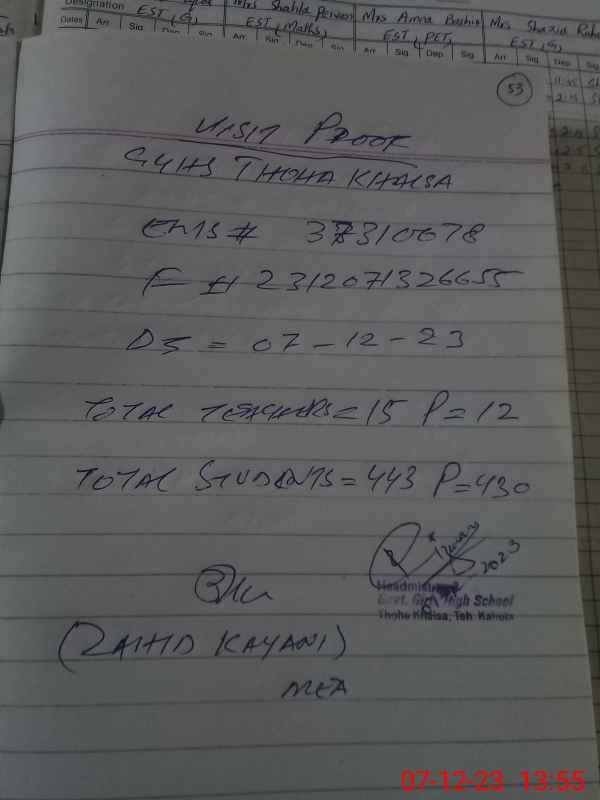 Designation
Mrs Shahla Perveen
Mrs Amna Bashir
Mrs Shazia
EST (G)
EST (Maths)
EST (PET)
EST (G)
Dates Arr Sig Dep Sig Arr Sig Dep Sig Arr Sig Dep Sig Arr Sig Dep Sig
53
VISIT PROOF
GGHS THOHA KHALSA
EMIS # 37310078
F # 2312071326655
DT = 07-12-23
TOTAL TEACHERS = 15 P = 12
TOTAL STUDENTS = 443 P = 430
2023
Headmistress
Govt. Girls High School
Thoha Khalsa, Teh. Kahuta
(ZAHID KAYANI)
MEA
07-12-23 13:55